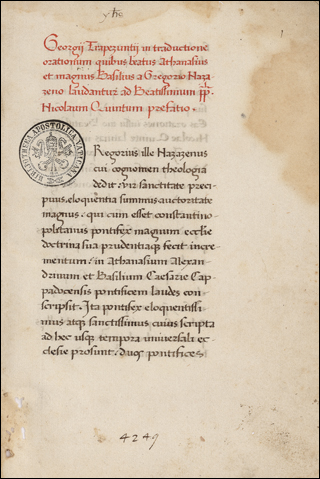 yhs
1
Georgij Trapezuntij in traductione
orationum quibus beatus Athanasius
et magnus Basilius a Gregorio Naza
zeno laudantur ad Beatissimum pp.
Nicolaum Quintum prefatio.
BIBLIOTHECA APOSTOLICA VATICANA
Regorius ille Nazazenus
cui cognomen theologia
dedit. vir sanctitate preci
puus. eloquentia summus auctoritate
magnus. qui cum esset constantino
politanus pontifex magnum ecclie
doctrina sua prudentiaque fecit incre
mentum. in Athanasium Alexan
drinum et Basilium Caesarie Cap
padocensis pontificem laudes con
scripsit. Ita pontifex eloquentissi
mus atque sanctissimus cuius scripta
ad hoc usque tempora universali ec
clesie prosunt. duos pontifices
4249